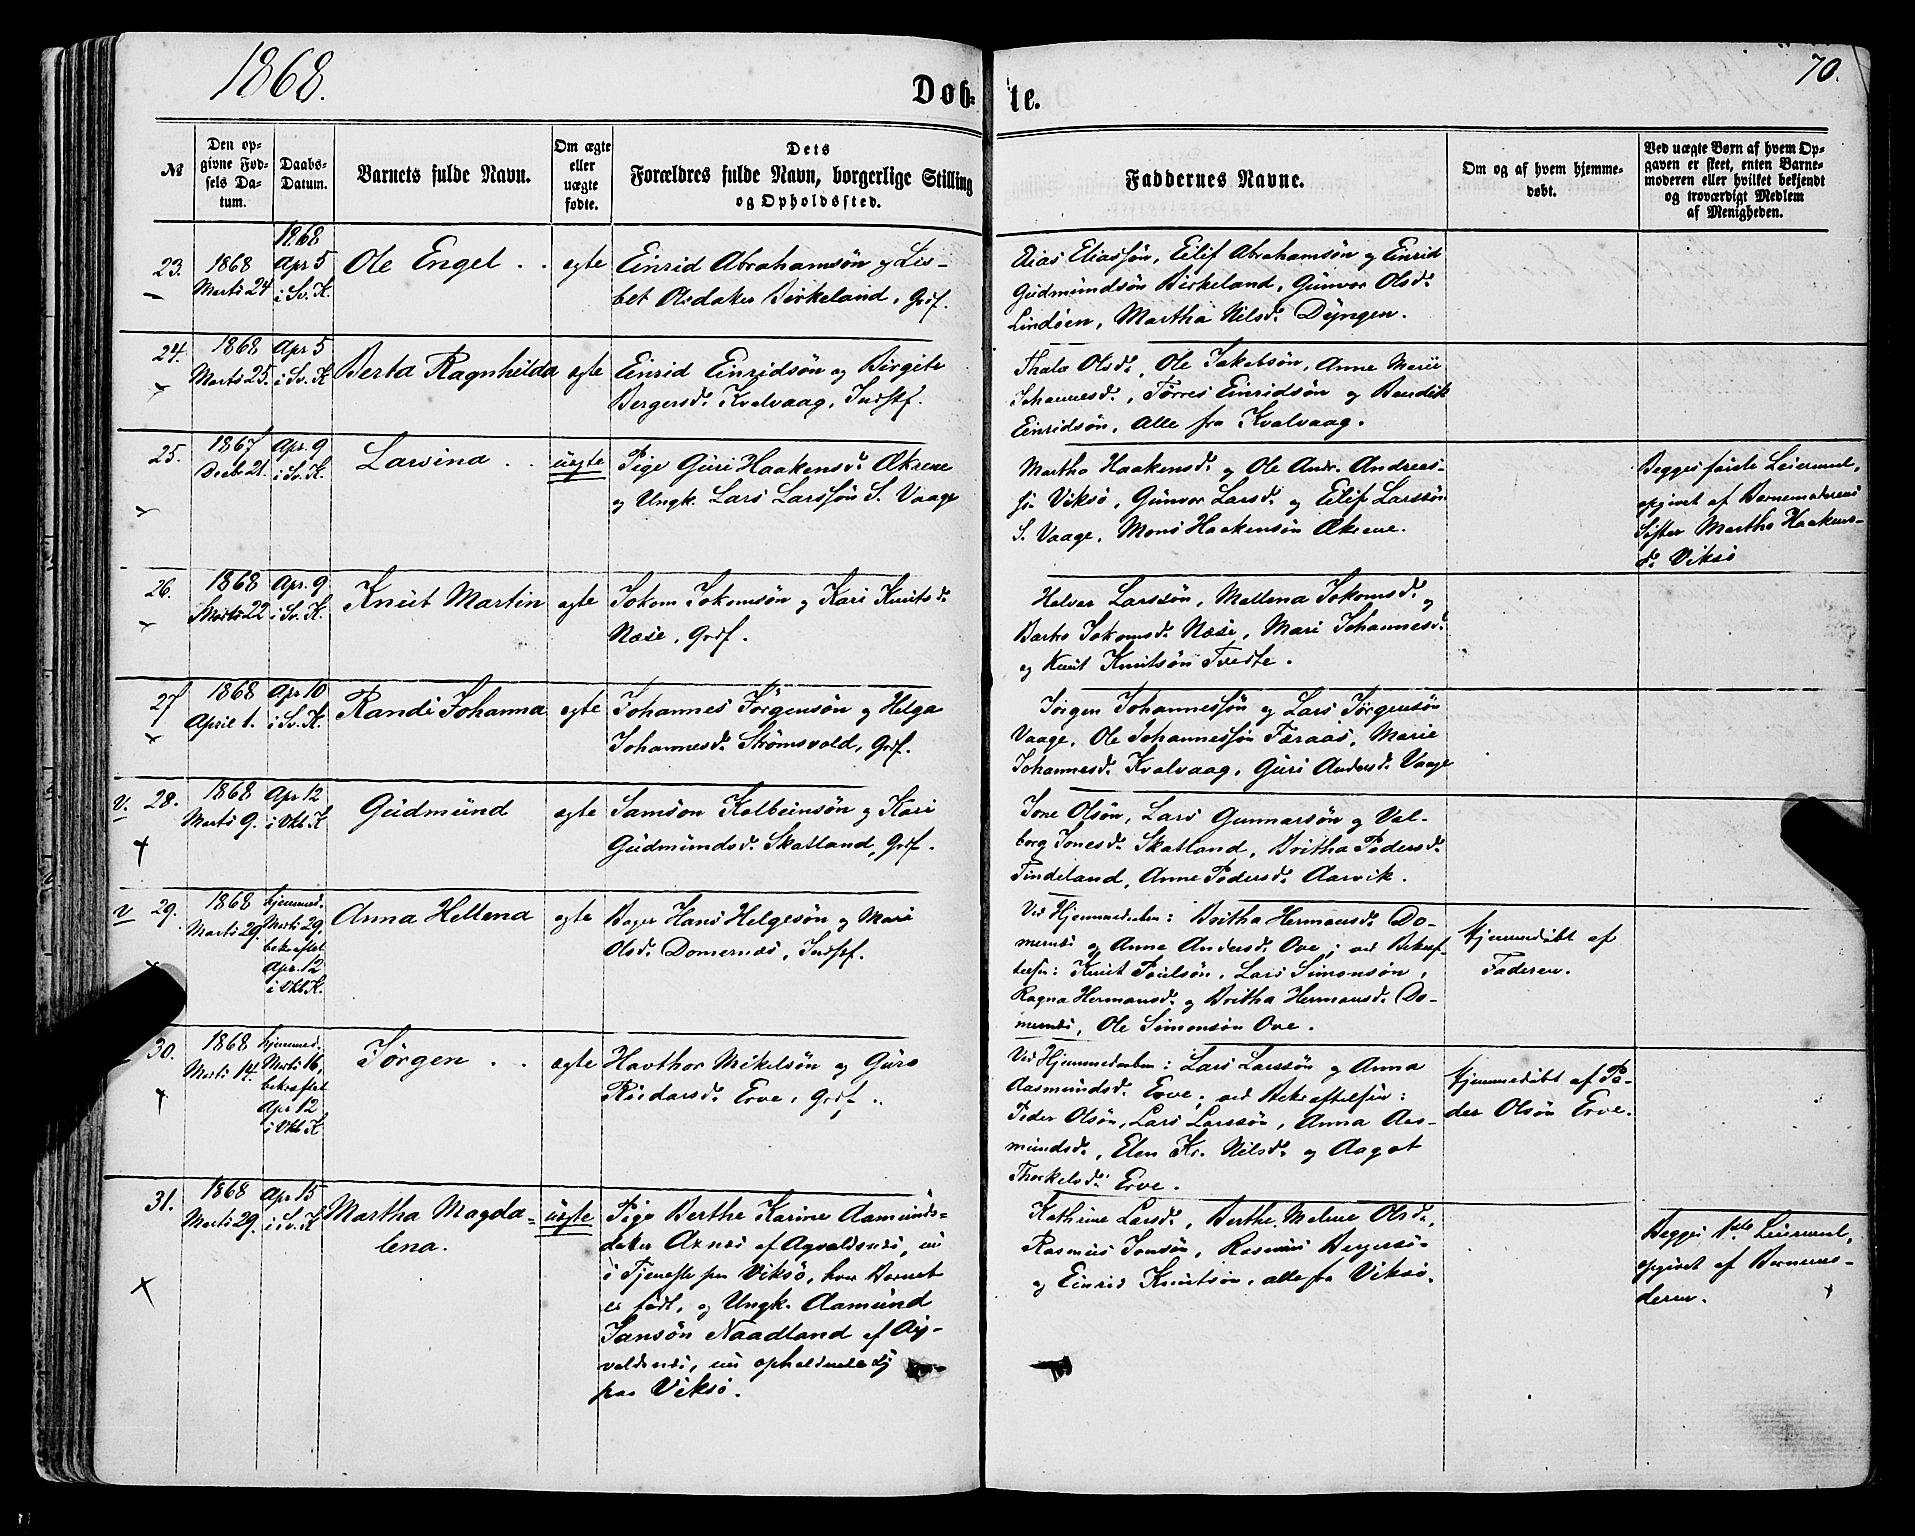 1868.
70.
Døb-te.
№
Den op-
givne Fød-
sels Da-
tum.
Daabs-
Datum.
Barnets fulde Navn.
Om ægte
eller
uægte
fødte.
Dets
Forældres fulde Navn, borgerlige Stilling
og Opholdssted.
Faddernes Navne.
Om og af hvem hjemme-
døbt.
Ved uægte Børn af hvem Op-
gaven er skeet, enten Barne-
moderen eller hvilket bekjendt
og troværdigt Medlem
af Menigheden.
23.
1868
Marts 24
1868
Apr 5
i Sv. K.
Ole Engel . .
egte
Einrid Abrahamsøn og Lis-
bet Olsdater Birkeland, Grdf.
Elias Eliassøn, Eilif Abrahamsøn og Einrid
Gudmundsøn Birkeland, Gunvor Olsd.
Lindøen, Martha Nilsd. Dyngen.
24.
1868
Marts 25.
Apr 5
i Sv. K
Berta Ragnhilda
egte
Einrid Einridsøn og Birgite
Bergersd. Kvalvaag, Indstf.
Thala Olsd., Ole Jakobsøn, Anne Marie
Johannesd., Tørres Einridsøn og Bendik
Einridsøn, Alle fra Kvalvaag.
25.
1867
Decb 21.
Apr. 9
i Sv. K.
Lawina . .
uegte
Pige Guri Haakensd. Økrene
og Ungk. Lars Larssøn S. Vaage
Martha Haakensd. og Ole Andr. Andreas-
sø. Viksø, Gunvor Larsd. og Eilif Larssøn
S. Vaage, Mons Haakensøn Økrene.
Begges første Leiermaal,
opgivet af Barnemoderens
Søster Martha Haakens-
d. Viksø
26.
1868
Marts 22
Apr. 9
i Sv. K.
Knut Martin
egte
Jokom Jokomsøn og Kari Knutsd.
Næse, Grdf.
Halvor Larssøn, Mallena Jokomsd. og
Bartha Jokomsd. Næse, Mari Johannesd.
og Knut Knutsøn Tveite.
27
1868
April 1.
Apr. 10
i Sv. K.
Randi Johanna
egte
Johannes Jørgensøn og Helga
Johannesd. Strømsvold, Grdf.
Jørgen Johannessøn og Lars Jørgensøn
Vaage, Ole Johannessøn Færaas, Marie
Johannesd. Kvalvaag, Guri Andersd. Vaage
V. 28.
1868
Marts 9.
Apr 12
i Vkb K
Gudmund
egte
Samson Kolbeinsøn og Kari
Gudmundsd. Skatland, Grdf.
Jone Olsøn, Lars Gunnarsøn og Val-
borg Jonesd. Skatland, Britha Pedersd.
Tindeland, Anne Pedersd. Aarvik.
V 29.
1868
Marts 29.
hjemmed.
Marts 29,
bekræftet
Apr. 12
i Vkb K.
Anna Hellena
egte
Bager Hans Helgesøn og Mari
Olsd. Domernæs, Indstf.
Ved Hjemmedaaben: Britha Hermansd. Do-
mernæs og Anne Andersd. Ove; ved Bekræf-
telsen: Knut Poulsøn, Lars Simonsøn,
Ragna Hermansd. og Britha Hermansd. Do-
mernæs, Ole Simonsøn Ove.
Hjemmedøbt af
Faderen.
30.
1868
Marts 14.
hjemmed.
Marts 16,
bekræftet
Apr 12
i Vkb K
Jørgen . .
ægte
Havthor Mikelsøn og Guro
Reidarsd. Erve, Grdf.
Ved Hjemmedaaben: Lars Larssøn og Anna
Aasmundsd. Erve; ved Bekræftelsen:
Peder Olsøn, Lars Larssøn, Anna Aas-
mundsd., Elen Kr. Nilsd. og Aagot
Thorkelsd. Erve.
Hjemmedøbt af Pe-
der Olsøn Erve.
31.
1868
Marts 29.
Apr 15
i Sv. K
Martha Magda-
lena.
uegte
Pige Berthe Karine Aamunds-
dater Aznæs af Agvaldsnæs, nu
i Tjeneste paa Viksø, hvor Barnet
er født, og Ungk. Aamund
Jansøn Naadland af Ag-
valdsnæs, nu opholdende sig
paa Viksø.
Kathrine Larsd., Berthe Malene Olsd.,
Rasmus Jonsøn, Rasmus Bergersø.
og Einrid Knutsøn, alle fra Viksø.
Begges 1ste Leiermaal,
opgivet af Barnemo-
deren.